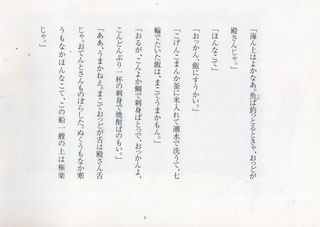 「海ん上はよかなあ。魚ば釣っとるときゃ、おっどが
殿さんじゃ。」
「ほんなこて」
「おっかん、飯にすうかい。」
「こげんこまんか釜に米入れて潮水で洗うて、七
輪でたいた飯は、まこてうまかもん。」
「おるが、こんよか鯛で刺身ばとって、おっかんよ、
こんどんぶり一杯の刺身で焼酎ばのもい。」
「ああ、うまかねえ。まこておっどが舌は殿さん舌
じゃ。おてんとさんものぼらした。ぬくうもなか寒
うもなかほんなこて、この船一艘の上は極楽
じゃ。」